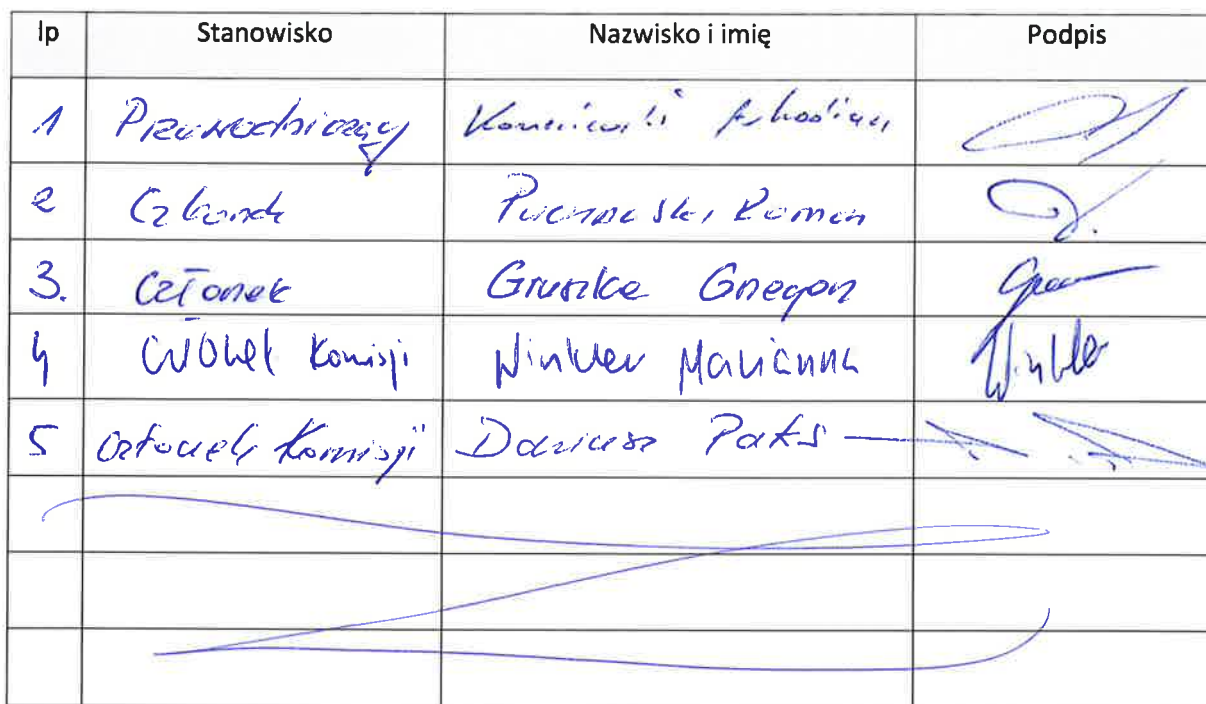 lp Stanowisko Nazwisko i imię Podpis
1 Przewodniczący
2 Członek Roman
3. Członek Gruszka Grzegorz
4 Członek Komisji Winkler Marianna Winkler
5 Członek Komisji Dariusz Pakś